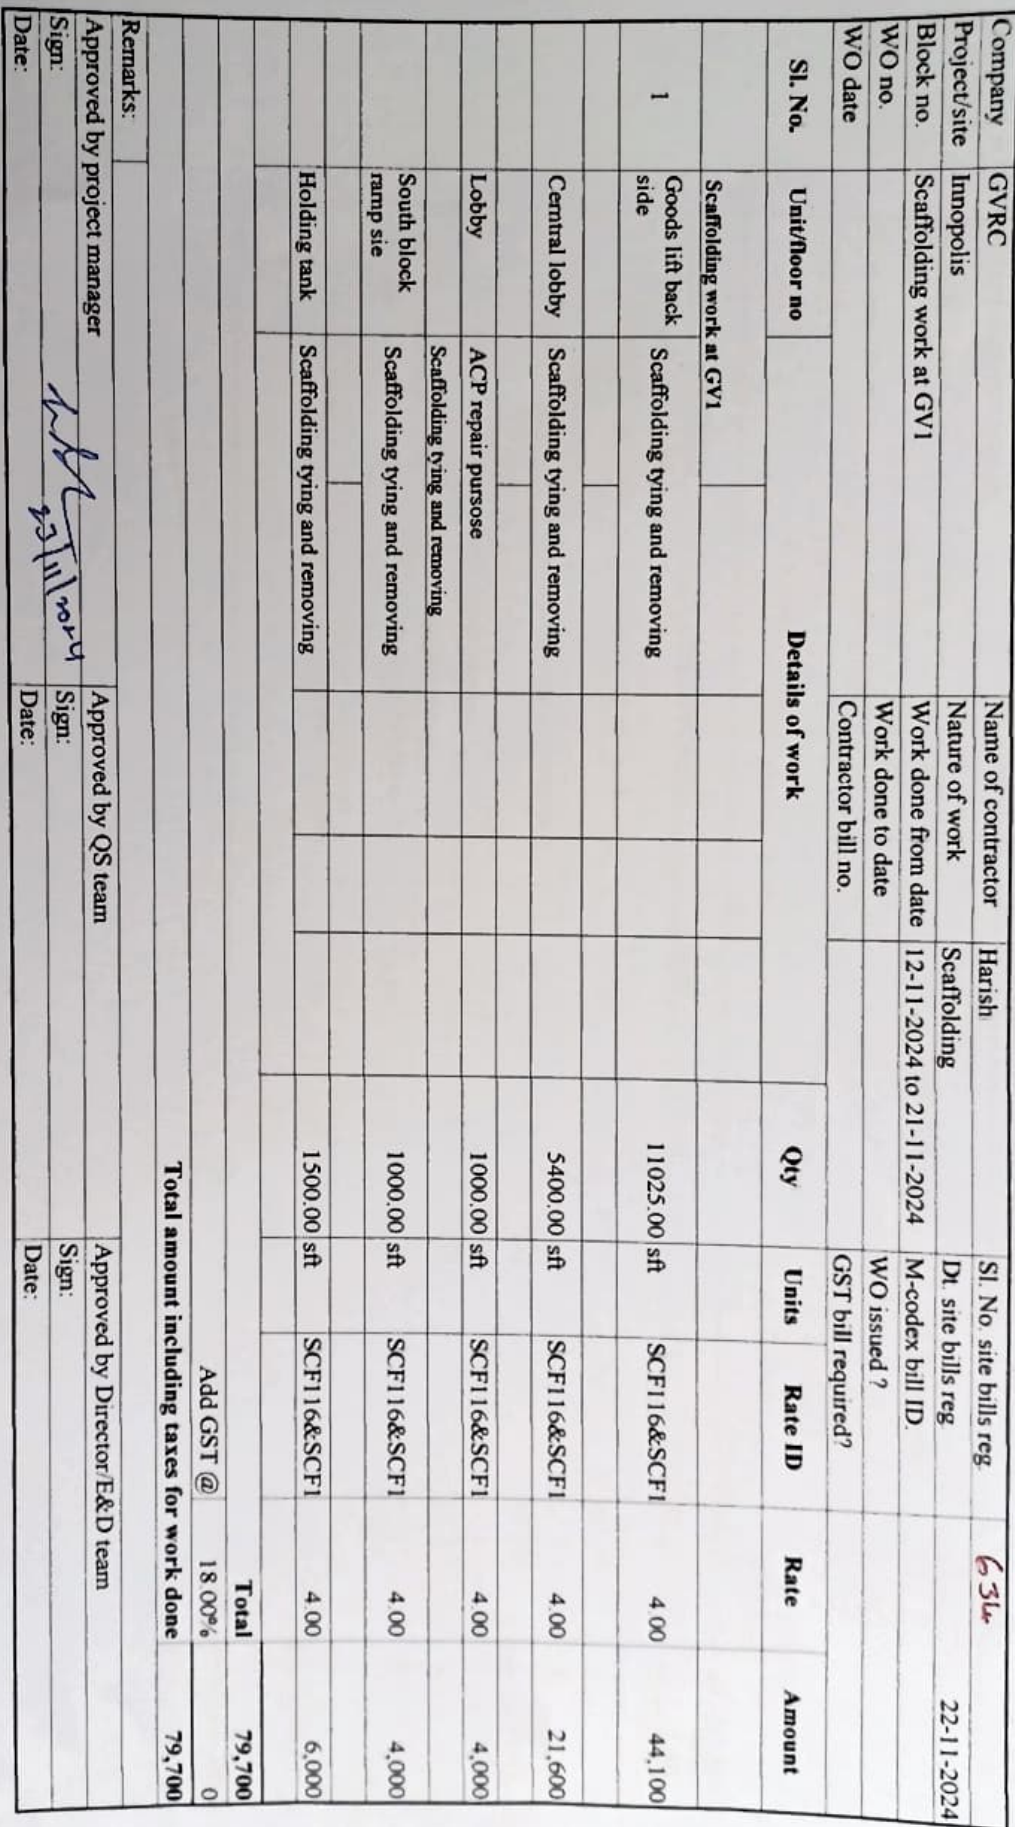 Company GVRC Name of contractor Harish Sl. No. site bills reg.
Project/site Innopolis Nature of work Scaffolding Dt. site bills reg. 22-11-2024
Block no. Scaffolding work at GV1 Work done from date 12-11-2024 to 21-11-2024 M-codex bill ID.
WO no. Work done to date WO issued ?
WO date Contractor bill no. GST bill required?
Sl. No. Unit/floor no Details of work Qty Units Rate ID Rate Amount
Scaffolding work at GV1
1 Goods lift back side Scaffolding tying and removing 11025.00 sft SCF116&SCF1 4.00 44,100
Cerntral lobby Scaffolding tying and removing 5400.00 sft SCF116&SCF1 4.00 21,600
Lobby ACP repair pursose 1000.00 sft SCF116&SCF1 4.00 4,000
Scaffolding tying and removing
South block ramp sie Scaffolding tying and removing 1000.00 sft SCF116&SCF1 4.00 4,000
Holding tank Scaffolding tying and removing 1500.00 sft SCF116&SCF1 4.00 6,000
Total 79,700
Add GST @ 18.00% 0
Total amount including taxes for work done 79,700
Remarks:
Approved by project manager Approved by QS team Approved by Director/E&D team
Sign: Sign: Sign:
Date: 23/11/2024 Date: Date: